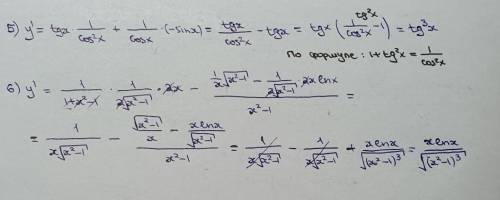 5) y' = tgx · 1/cos²x + 1/cosx · (-sinx) = tgx/cos²x - tgx = tgx (1/cos²x - 1) = tg³x
tg²x
По формуле : 1 + tg²x = 1/cos²x
6) y' = 1/(1+x²-1) · 1/(2√(x²-1)) · 2x - (1/x √(x²-1) - 1/(2√(x²-1)) · 2x lnx)/(x²-1) =
= 1/(x√(x²-1)) - (√(x²-1)/x - xlnx/√(x²-1))/(x²-1) = 1/(x√(x²-1)) - 1/(x√(x²-1)) + xlnx/√((x²-1)³) = xlnx/√((x²-1)³)